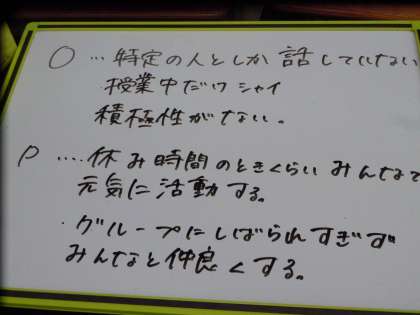 ○ … 特定の人としか話していない
・授業中だけシャイ
積極性がない。
P …. 休み時間のときくらいみんなで
元気に活動する。
・グループにしばられすぎず
みんなと仲良くする。